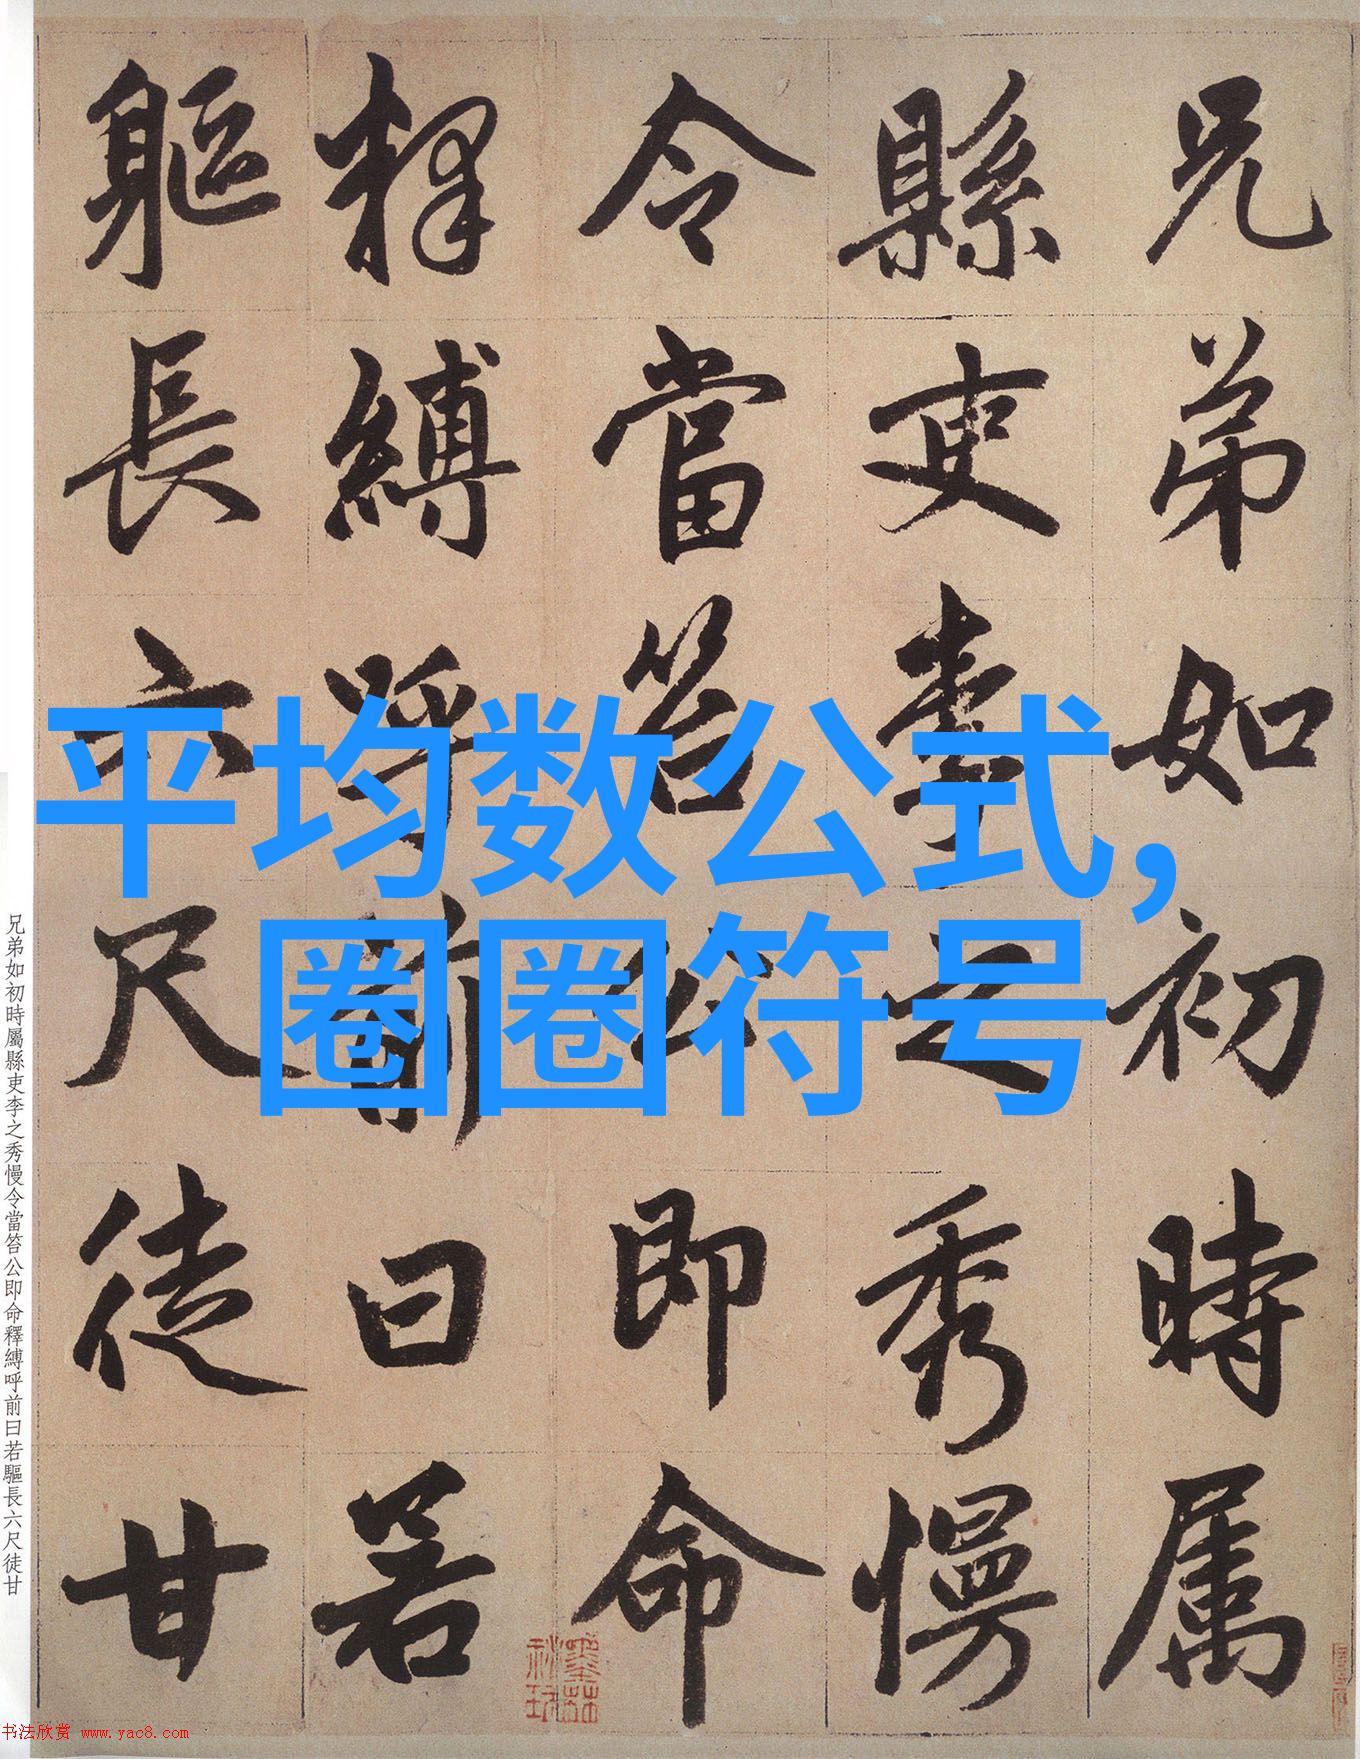 兄弟如初時属
縣吏李之秀慢
令當笞公即命
释縛呼前曰若
軀長六尺徒甘
平均数公式，
圈圈符号
兄弟如初時屬縣吏李之秀慢令當笞公即命釋縛呼前曰若軀長六尺徒甘
书法欣赏 www.yac8.com